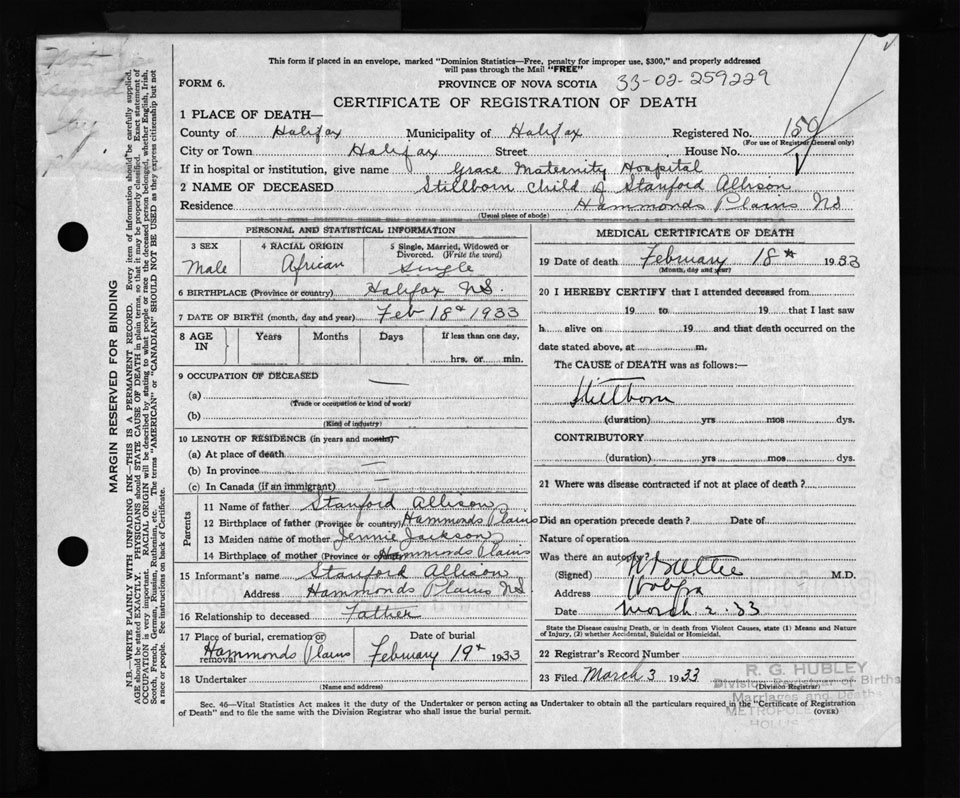 This form if placed in an envelope, marked "Dominion Statistics—Free, penalty for improper use, $300," and properly addressed
will pass through the Mail "FREE"
FORM 6.
PROVINCE OF NOVA SCOTIA
33-02-259229
CERTIFICATE OF REGISTRATION OF DEATH
1 PLACE OF DEATH—
County of Halifax Municipality of Halifax Registered No. 150
(For use of Registrar General only)
City or Town Halifax Street House No.
If in hospital or institution, give name Grace Maternity Hospital
2 NAME OF DECEASED Stillborn child of Stanford Allison
Residence Hammonds Plains NS
(Usual place of abode)
PERSONAL AND STATISTICAL INFORMATION
3 SEX 4 RACIAL ORIGIN 5 Single, Married, Widowed or
Divorced. (Write the word)
Male African Single
6 BIRTHPLACE (Province or country) Halifax N.S.
7 DATE OF BIRTH (month, day and year) Feb 18th 1933
8 AGE IN Years Months Days If less than one day,
hrs. or min.
9 OCCUPATION OF DECEASED
(a)
(Trade or occupation or kind of work)
(b)
(Kind of industry)
10 LENGTH OF RESIDENCE (in years and months)
(a) At place of death
(b) In province
(c) In Canada (if an immigrant)
Parents
11 Name of father Stanford Allison
12 Birthplace of father (Province or country) Hammonds Plains
13 Maiden name of mother Jennie Jackson
14 Birthplace of mother (Province or country) Hammonds Plains
15 Informant's name Stanford Allison
Address Hammonds Plains NS
16 Relationship to deceased Father
17 Place of burial, cremation or
removal Hammonds Plains
Date of burial
February 19th 1933
18 Undertaker
(Name and address)
MEDICAL CERTIFICATE OF DEATH
19 Date of death February 18th 1933
(Month, day and year)
20 I HEREBY CERTIFY that I attended deceased from
19 to 19 that I last saw
h alive on 19 and that death occurred on the
date stated above, at m.
The CAUSE of DEATH was as follows:—
Stillborn
(duration) yrs mos dys.
CONTRIBUTORY
(duration) yrs mos dys.
21 Where was disease contracted if not at place of death?
Did an operation precede death? Date of
Nature of operation
Was there an autopsy?
(Signed) M.D.
Address Halifax
Date March 2. 33
State the Disease causing Death, or in death from Violent Causes, state (1) Means and Nature
of Injury, (2) whether Accidental, Suicidal or Homicidal.
22 Registrar's Record Number
23 Filed March 3 1933
(Division Registrar)
R. G. HUBLEY
Division Registrar of Births
Marriages and Deaths
Sec. 46—Vital Statistics Act makes it the duty of the Undertaker or person acting as Undertaker to obtain all the particulars required in the "Certificate of Registration
of Death" and to file the same with the Division Registrar who shall issue the burial permit.
(OVER)
MARGIN RESERVED FOR BINDING
N.B.—WRITE PLAINLY WITH UNFADING INK—THIS IS A PERMANENT RECORD. Every item of information should be carefully supplied.
AGE should be stated EXACTLY. PHYSICIANS should STATE CAUSE OF DEATH in plain terms, so that it may be properly classified. Exact statement of
OCCUPATION is very important. RACIAL ORIGIN will be described by stating to what people or race the deceased person belonged, whether English, Irish,
Scotch, French, German, Russian, Ruthenian, etc. The terms "AMERICAN" or "CANADIAN" SHOULD NOT BE USED as they express citizenship but not
a race or people. See instructions on back of Certificate.